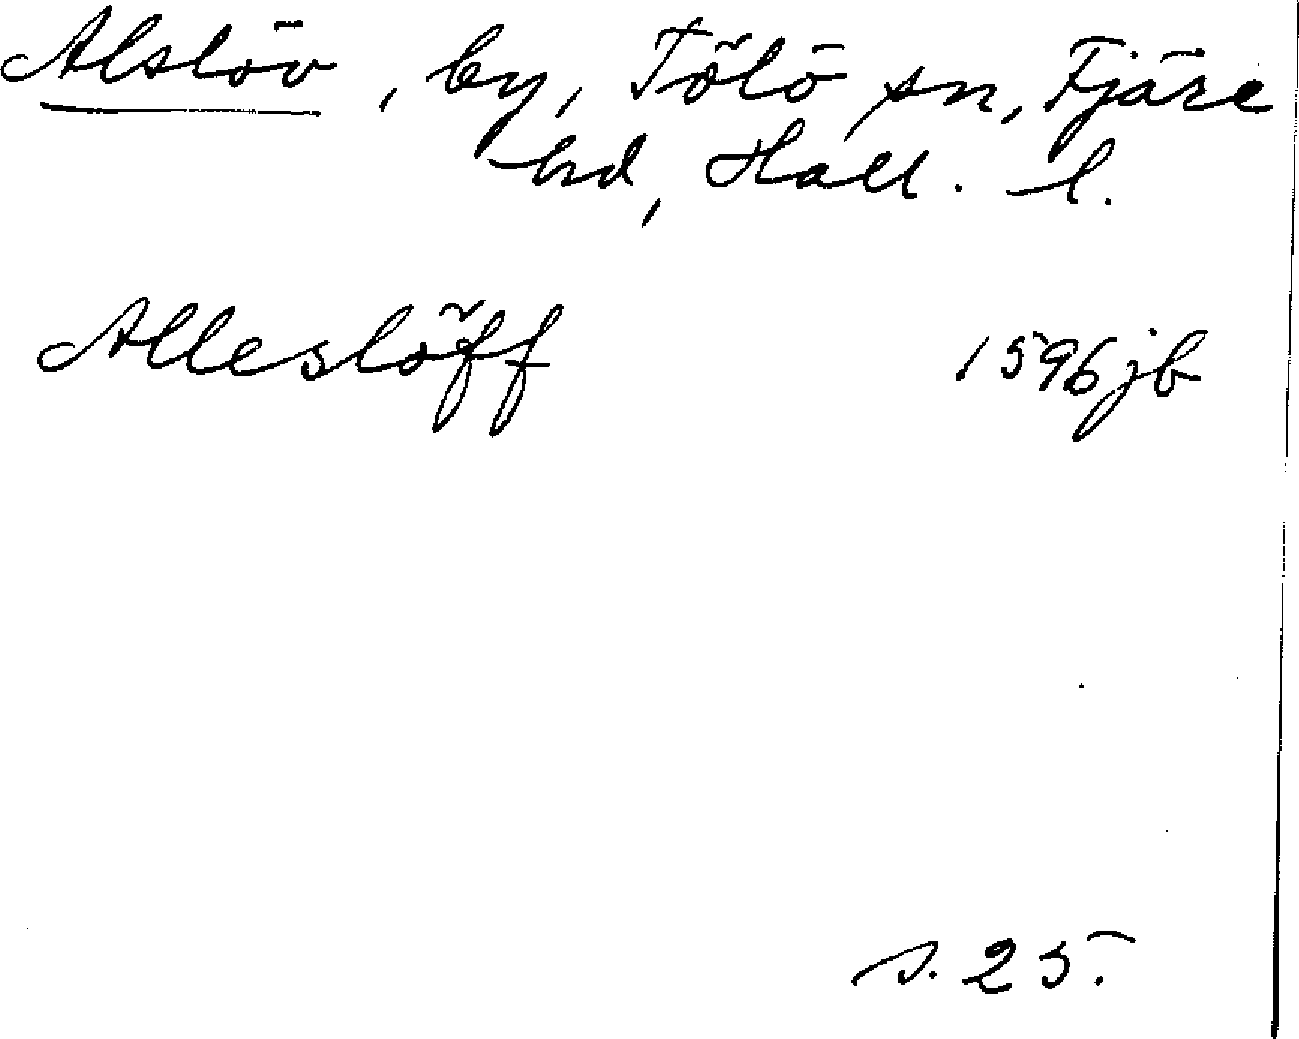 Alslöv, by, Tölö sn, Fjäre
hd, Hall. l.
Alleslöff 1596 jb
s. 25.